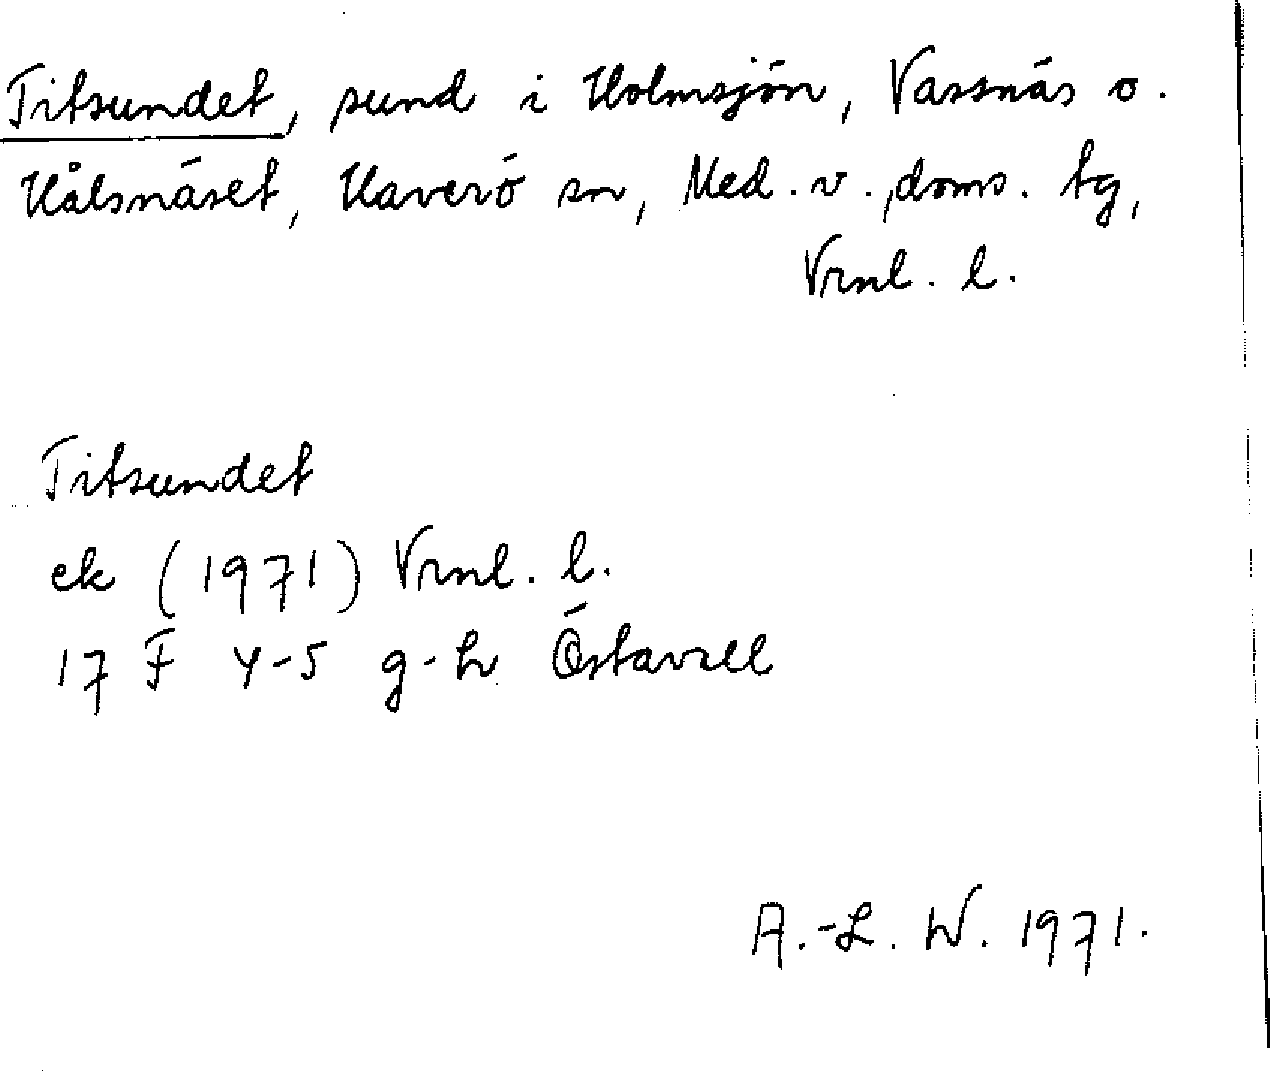 Titsundet, sund i Holmsjön, Vassnäs o.
Hålsnäset, Haverö sn, Med. v. doms. tg,
Vrnl. l.
Titsundet
ek (1971) Vrnl. l.
17 F 4-5 g-h Östavall
A.-L. W. 1971.